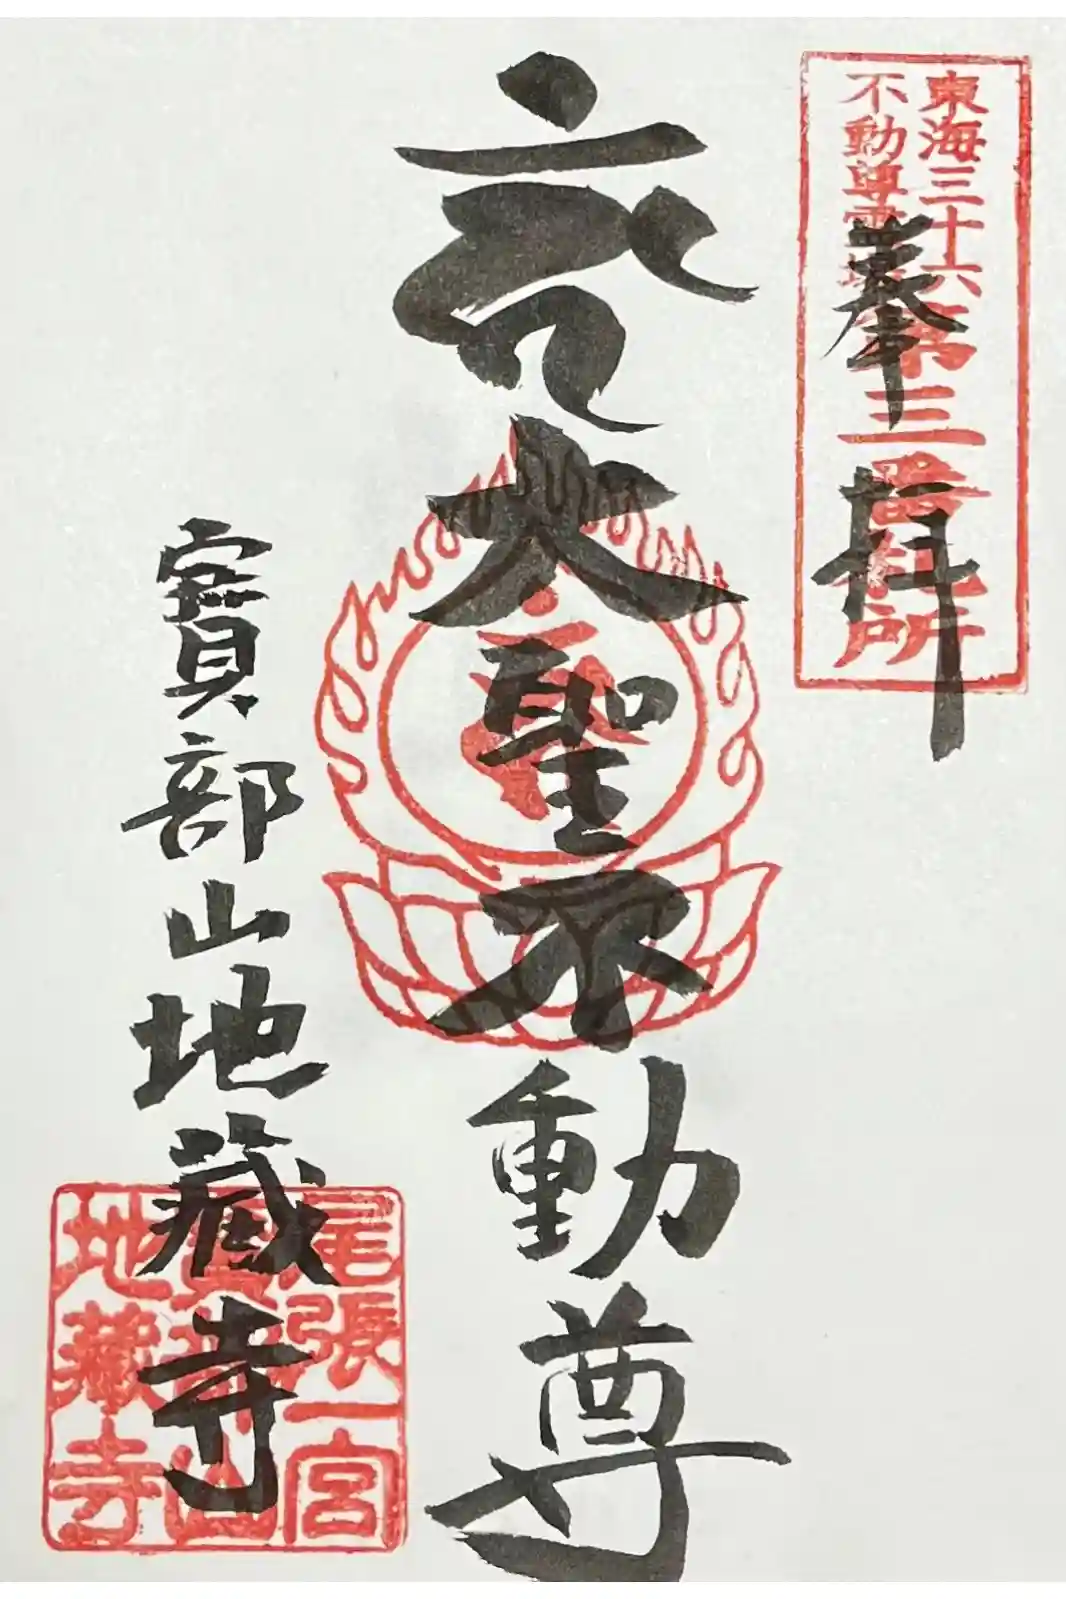 東海三十六
不動尊霊場
第三番札所
奉拝
大聖不動尊
寶部山地蔵寺
尾張一宮
寶部山
地蔵寺